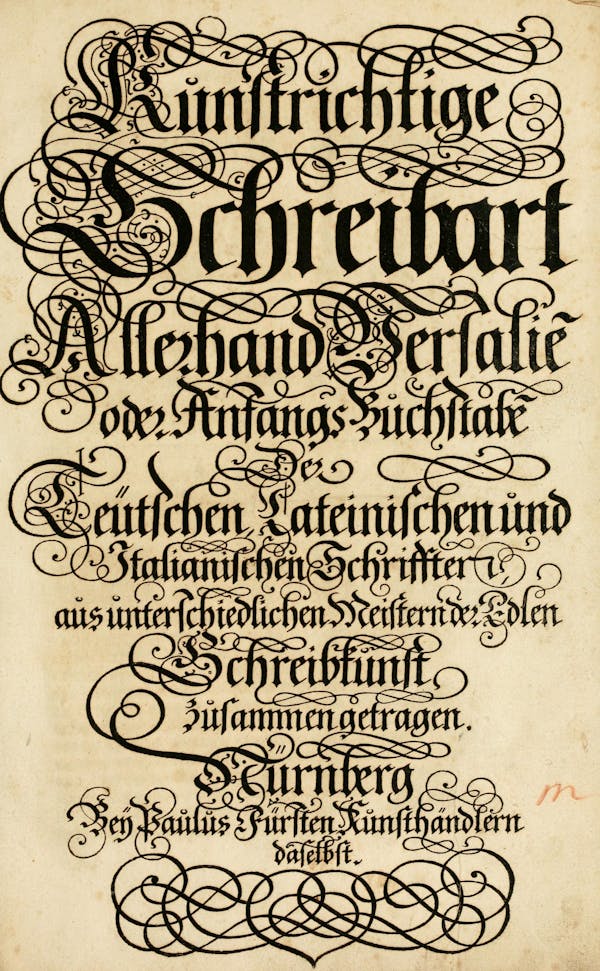 Kunstrichtige
Schreibart
Allerhand Versaliē
oder AnfangsBuchstabē
Der
Teütschen, Lateinischen und
Italianischen Schrifften,
aus unterschiedlichen Meistern der Edlen
Schreibkunst
zusammen getragen.
Nürnberg
Beÿ Paulus Fürsten Kunsthändlern
daselbst.
m